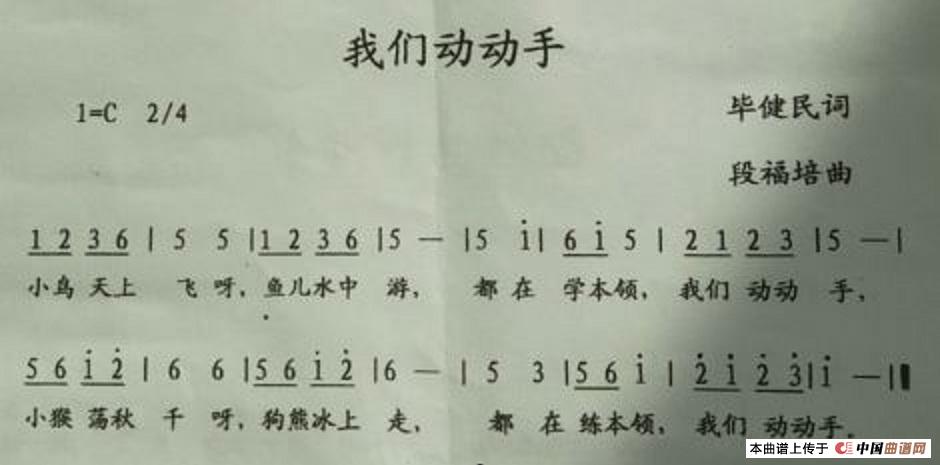 我们动动手
1=C 2/4
毕健民词
段福培曲
1 2 3 6 | 5 5 | 1 2 3 6 | 5 — | 5 i̇ | 6 i̇ 5 | 2 1 2 3 | 5 — |
小鸟 天上 飞 呀, 鱼儿水中 游, 都 在 学本领, 我们 动动 手,
5 6 i̇ 2̇ | 6 6 | 5 6 i̇ 2̇ | 6 — | 5 3 | 5 6 i̇ | 2̇ i̇ 2̇ 3̇ | i̇ — ‖
小猴 荡秋 千 呀, 狗熊冰上 走, 都 在 练本领, 我们 动动手。
本曲谱上传于 中国曲谱网